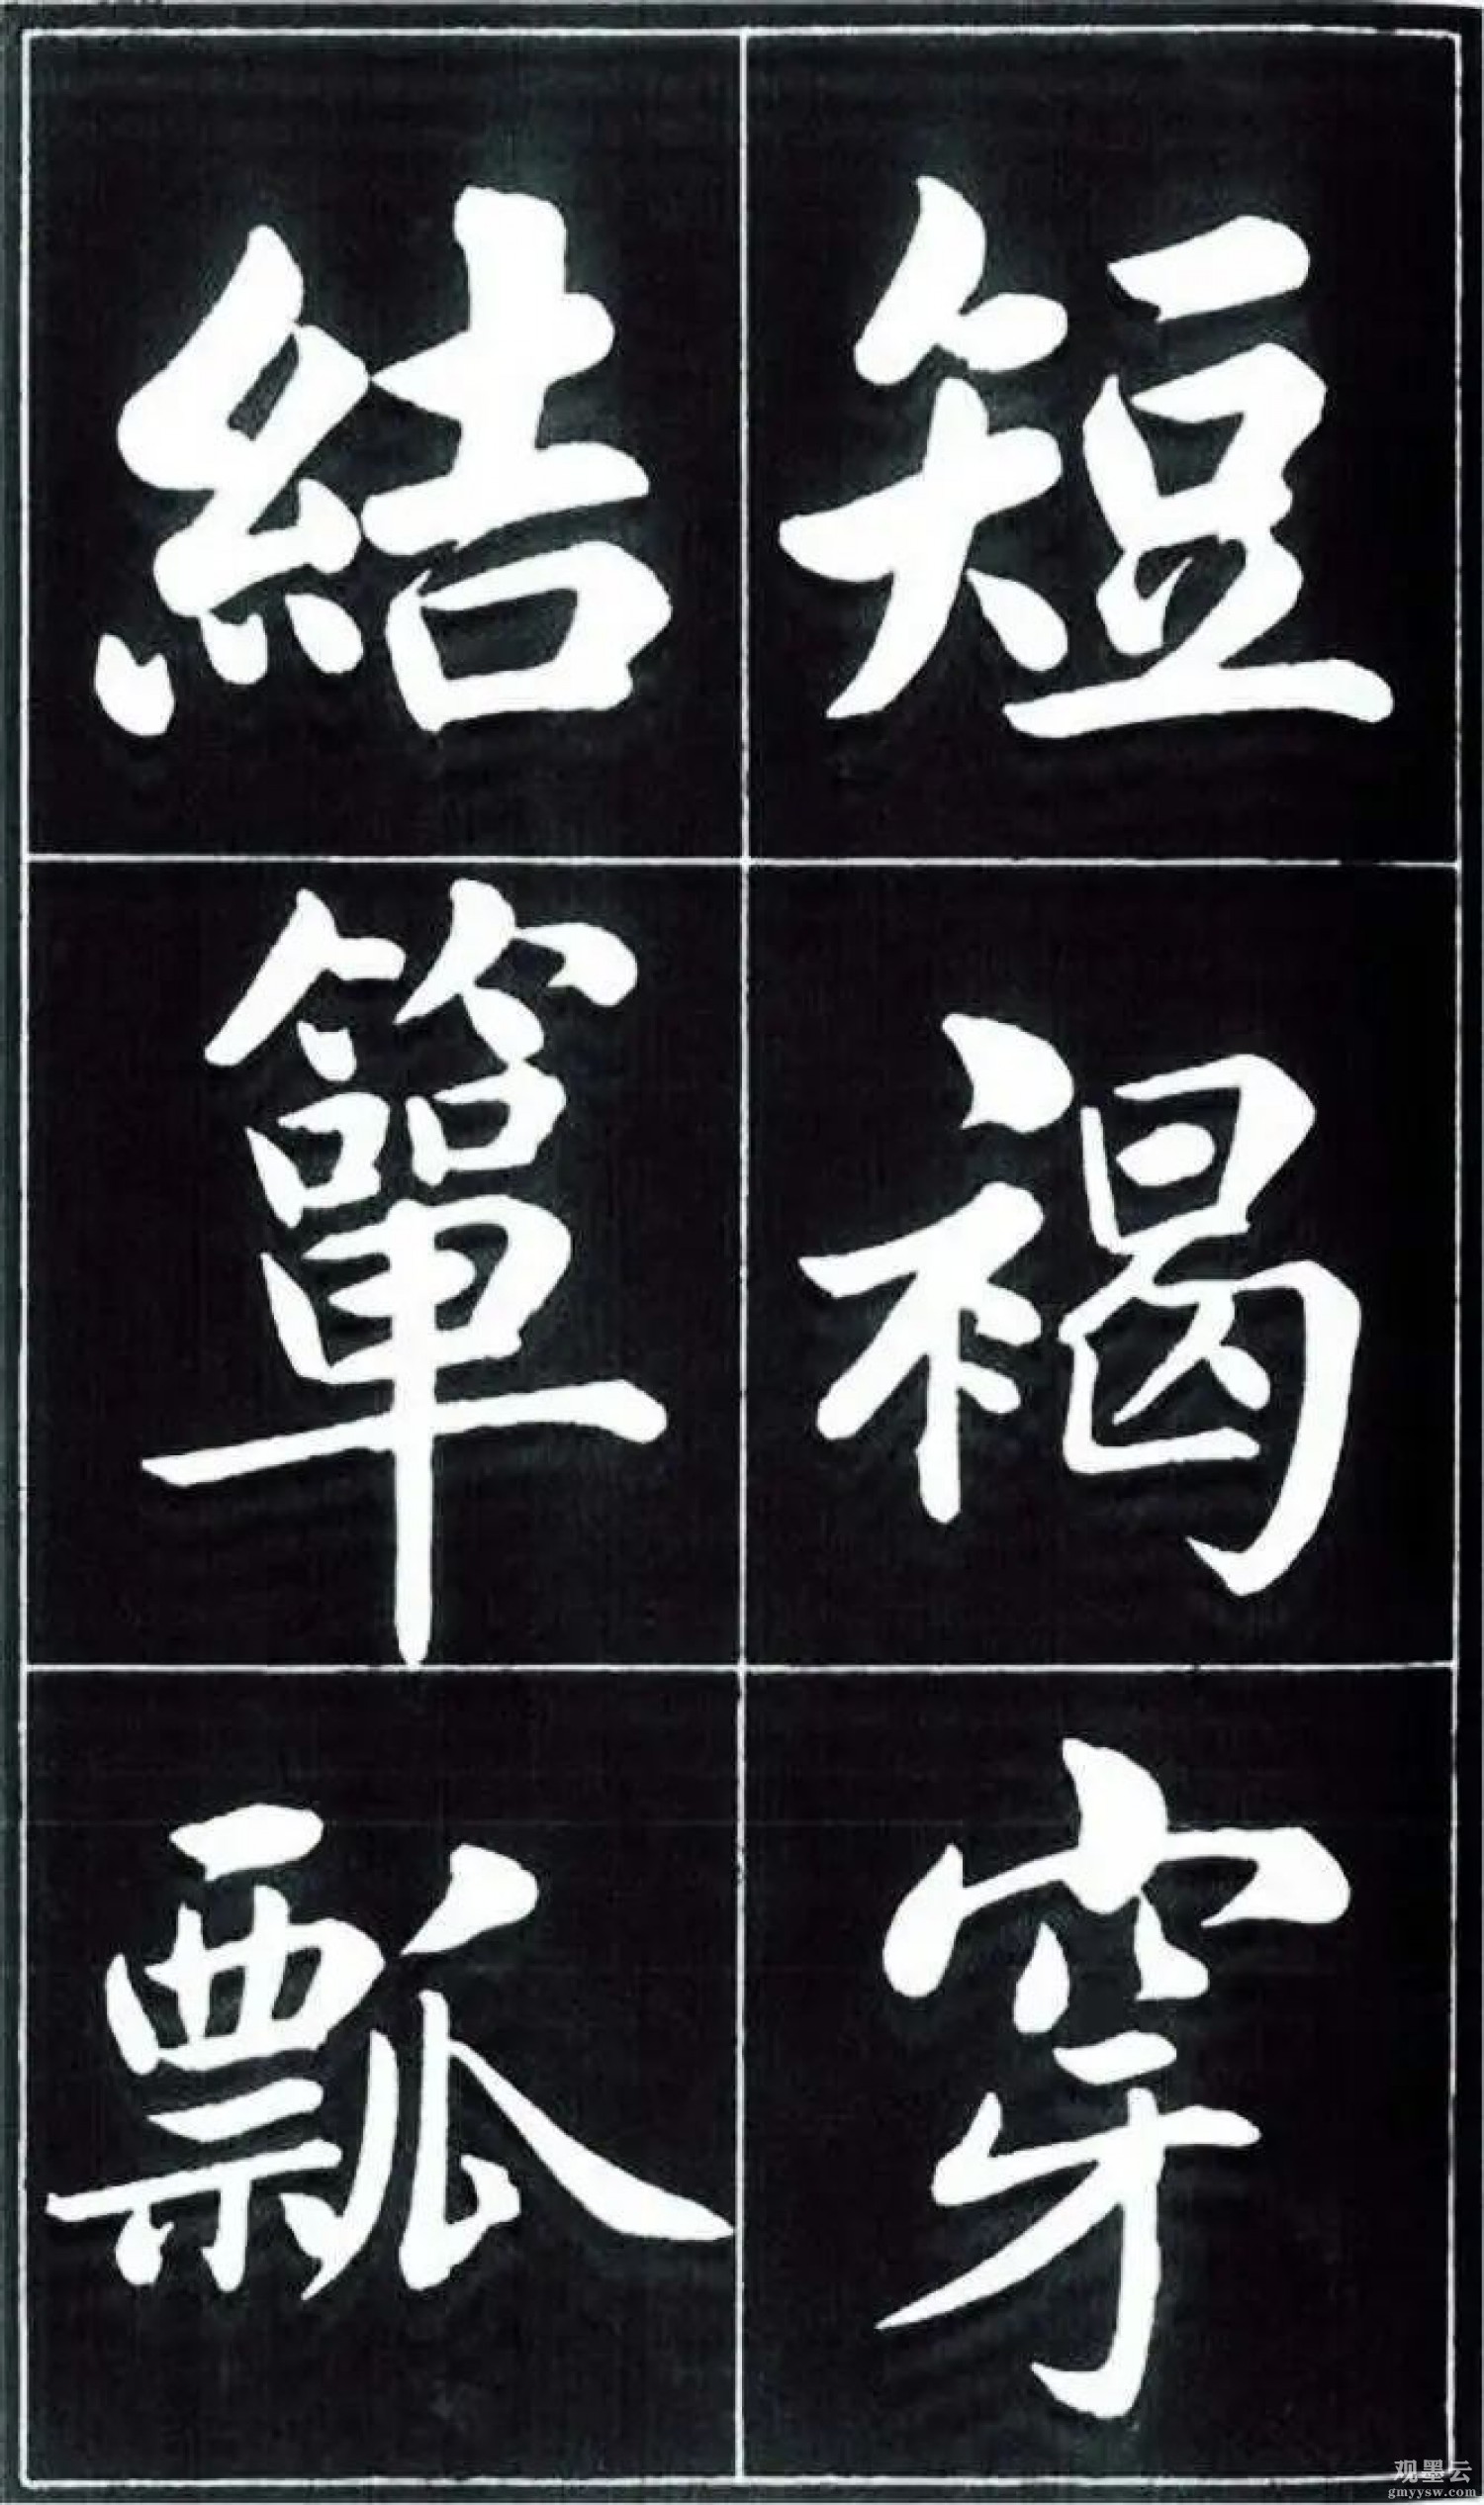 短褐穿
結簞瓢
观墨云
gmyysw.com